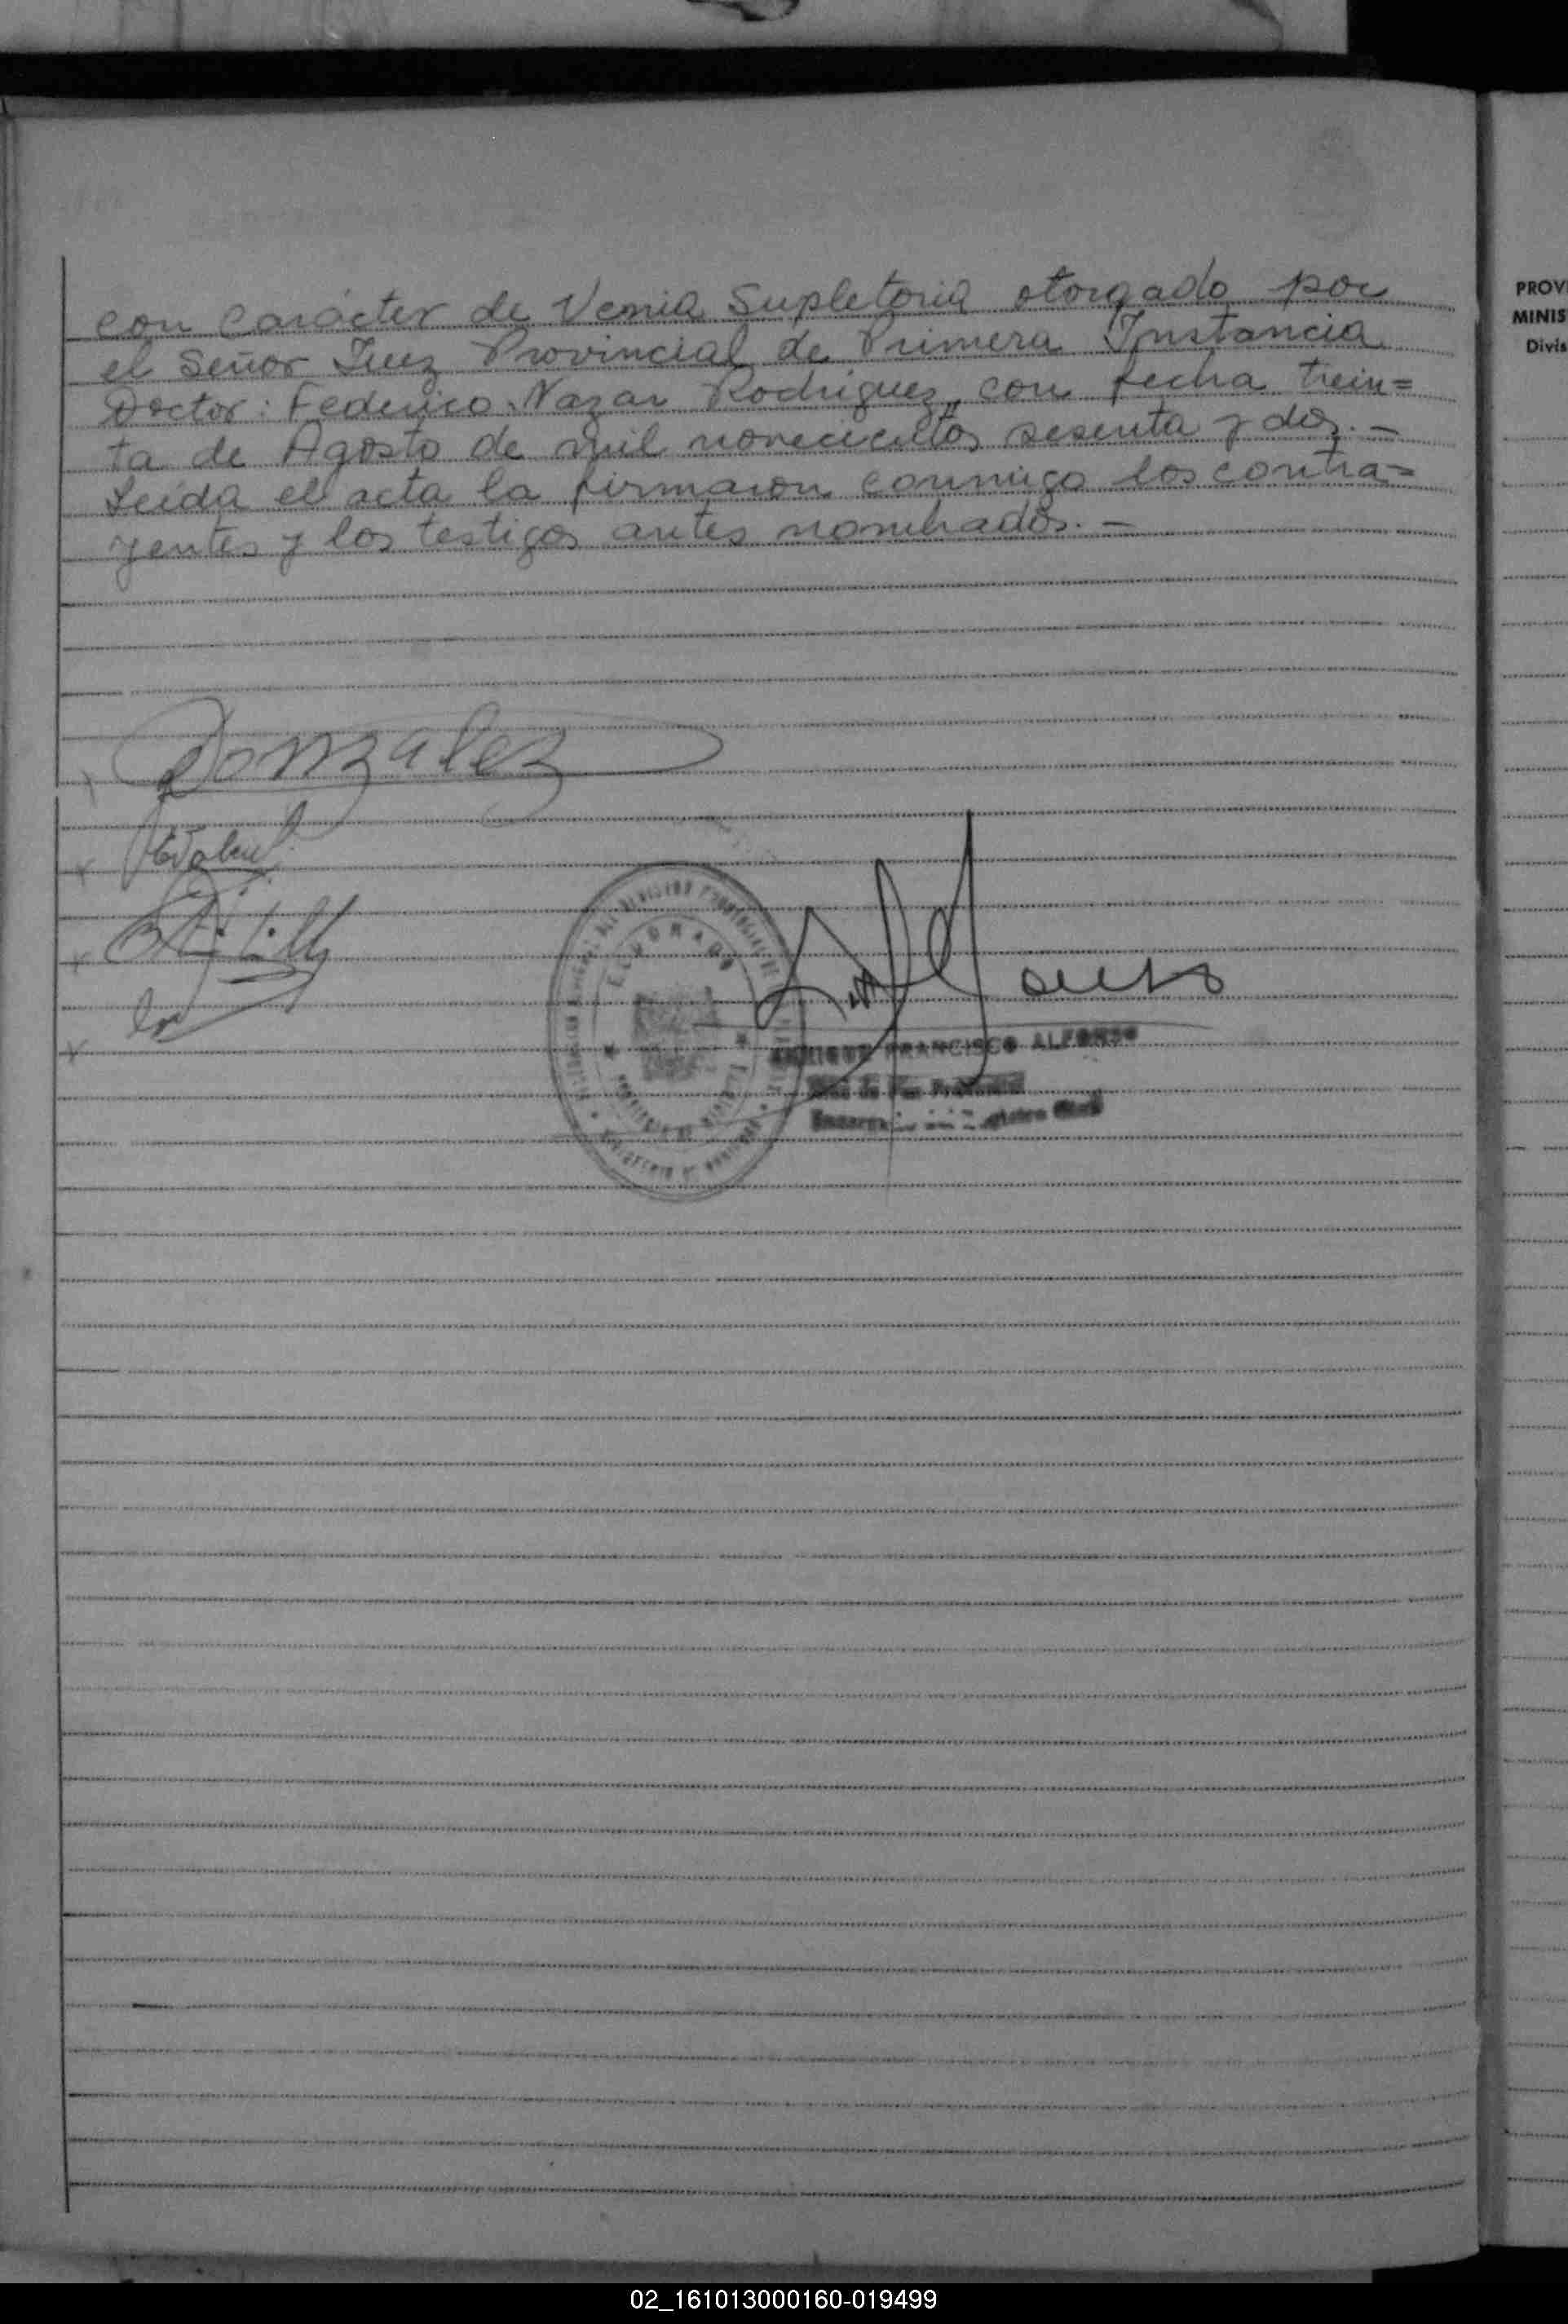 con carácter de Venia Supletoria otorgado por
el Señor Juez Provincial de Primera Instancia
Doctor: Federico Nazar Rodriguez, con fecha trein=
ta de Agosto de mil novecientos sesenta y dos.-
Leída el acta la firmaron conmigo los contra=
yentes y los testigos antes nombrados.-
Gonzalez
ELDORADO
ENRIQUE FRANCISCO ALFONSO
Juez de Paz
PROV
MINIS
Divis
02_161013000160-019499